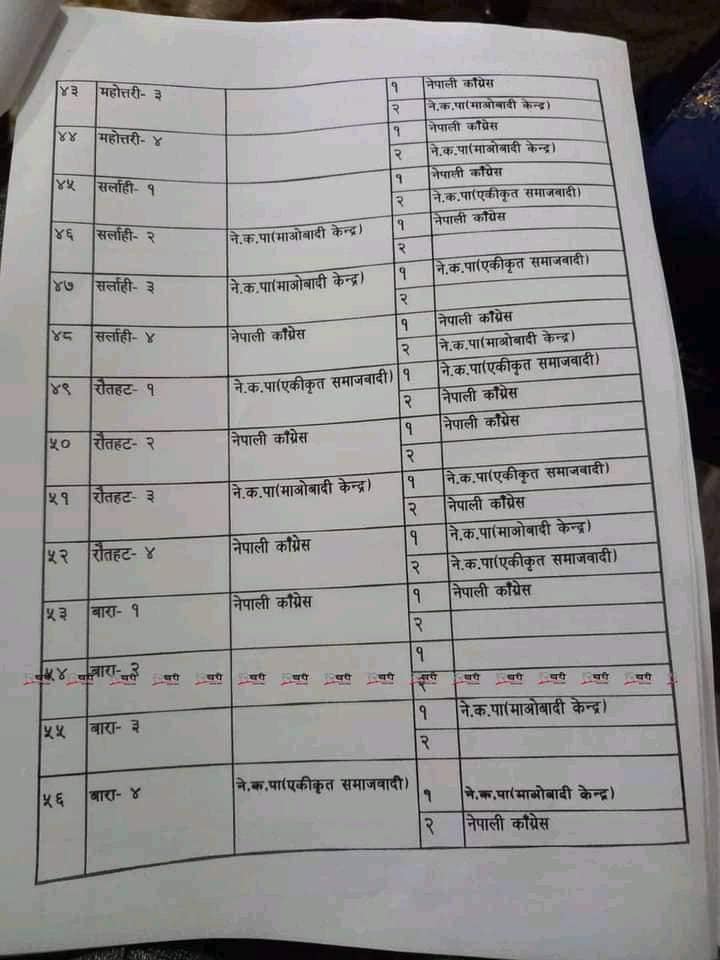 ४३ महोत्तरी- ३ १ नेपाली काँग्रेस
२ ने.क.पा(माओबादी केन्द्र)
४४ महोत्तरी- ४ १ नेपाली काँग्रेस
२ ने.क.पा(माओबादी केन्द्र)
४५ सर्लाही- १ १ नेपाली काँग्रेस
२ ने.क.पा(एकीकृत समाजबादी)
४६ सर्लाही- २ ने.क.पा(माओबादी केन्द्र) १ नेपाली काँग्रेस
२
४७ सर्लाही- ३ ने.क.पा(माओबादी केन्द्र) १ ने.क.पा(एकीकृत समाजबादी)
२
४८ सर्लाही- ४ नेपाली काँग्रेस १ नेपाली काँग्रेस
२ ने.क.पा(माओबादी केन्द्र)
४९ रौतहट- १ ने.क.पा(एकीकृत समाजबादी) १ ने.क.पा(एकीकृत समाजबादी)
२ नेपाली काँग्रेस
५० रौतहट- २ नेपाली काँग्रेस १ नेपाली काँग्रेस
२
५१ रौतहट- ३ ने.क.पा(माओबादी केन्द्र) १ ने.क.पा(एकीकृत समाजबादी)
२ नेपाली काँग्रेस
५२ रौतहट- ४ नेपाली काँग्रेस १ ने.क.पा(माओबादी केन्द्र)
२ ने.क.पा(एकीकृत समाजबादी)
५३ बारा- १ नेपाली काँग्रेस १ नेपाली काँग्रेस
२
५४ बारा- २ १
२
५५ बारा- ३ १ ने.क.पा(माओबादी केन्द्र)
२
५६ बारा- ४ ने.क.पा(एकीकृत समाजवादी) १ ने.क.पा(माओबादी केन्द्र)
२ नेपाली काँग्रेस